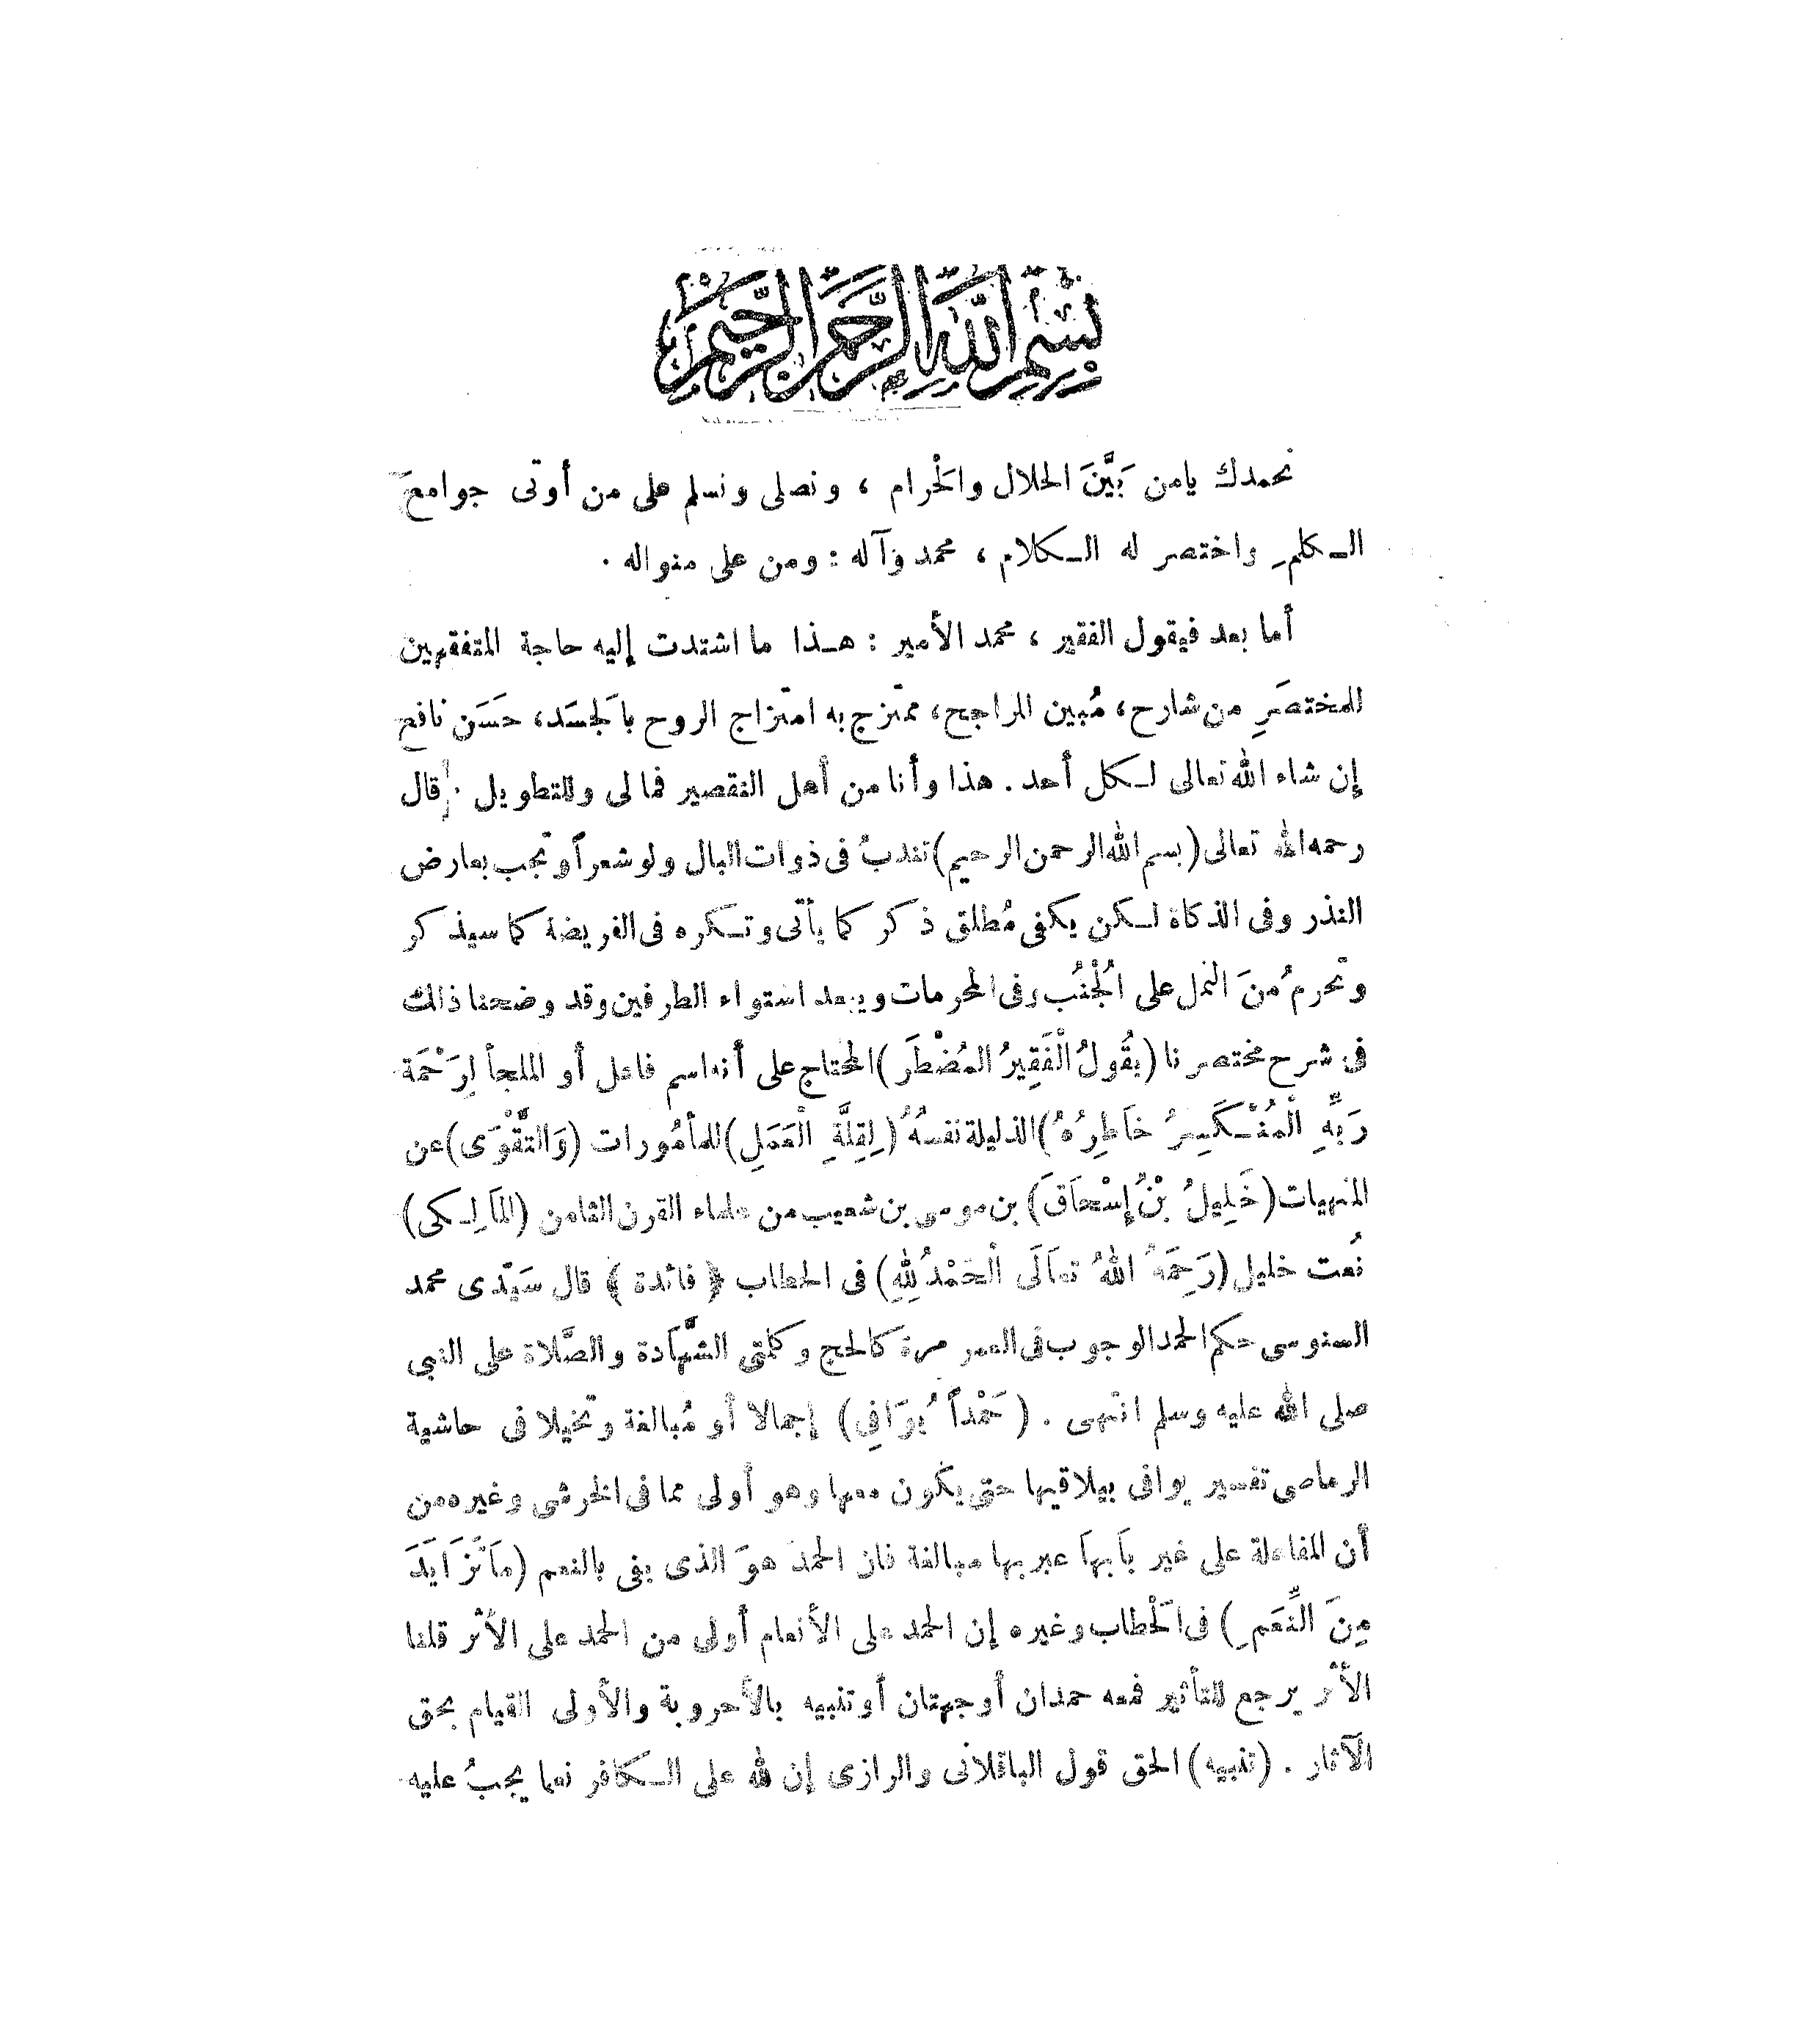 بِسْمِ اللَّهِ الرَّحْمَنِ الرَّحِيمِ
نحمدك يامن بَيَّنَ الحلال والْحرام ، ونصلى ونسلم على من أوتى جوامعَ
الـكلمِ واختصر له الـكلام ، محمد وَآله : ومن على منواله .
أما بعد فيقول الفقير ، محمد الأمير : هـذا ما اشتدت إليه حاجة المتفقهين
للمختصَرِ من شارح، مُبين الراجح، ممتزج به امتزاج الروح بالْجسَد، حَسَن نافع
إن شاء الله تعالى لـكل أحد . هذا وأنا من أهل التقصير فمالى وللتطويل . قال
رحمه الله تعالى (بسم الله الرحمن الرحيم) تندبُ فى ذوات البال ولو شعراً وتجب بعارض
النذر وفى الذكاة لـكن يكفى مُطلق ذكر كما يأتى وتـكره فى الفريضة كما سيذكر
وتحرمُ منَ النمل على الْجُنُب وفى المحرمات ويبعد استواء الطرفين وقد وضحنا ذلك
فى شرح مختصرنا (يقُولُ الْفَقِيرُ المُضْطَر) المحتاج على أنه اسم فاعل أو الملجأ لِرَحْمَة
رَبِّهِ الْمُنْـكَسِرُ خَاطِرُهُ) الذليلة نفسهُ (لِقِلَّةِ الْعَمَلِ) للمأمُورات (وَالتَّقْوَى) عن
المنهيات (خَلِيلُ بْنُ إِسْحَاقَ) بن موسى بن شعيب من علماء القرن الثامن (المَالِـكى)
نُعت خليل (رَحِمَهُ اللهُ تعَالَى الْحَمْدُ لِلهِ) فى الحطاب ﴿ فائدة ﴾ قال سَيّدى محمد
السنوسى حكم الحمد الوجوب فى العمر مرة كالحج وكلمتى الشَّهادة والصَّلاة على النبى
صلى الله عليه وسلم انتهى . (حَمْداً يُوَافِى) إجمالا أو مُبالغة وتخيلا فى حاشية
الرماصى تفسير يوافى بيلاقيها حتى يكون معها وهو أولى مما فى الخرشى وغيره من
أن المفاعلة على غير بابها عبر بها مبالغة فان الحمدَ هوَ الذى يفى بالنعم (مَا تَزَايَدَ
مِنَ النِّعَمِ) فى الْحطاب وغيره إن الحمد على الأنعام أولى من الحمد على الأثر قلنا
الأثر يرجع للتأثير فمعه حمدان أو جهتان أو تنبيه بالأحروية والأولى القيام بحق
الآثار . (تنبيه) الحق قول الباقلانى والرازى إن لله على الـكافر نعما يجبُ عليه